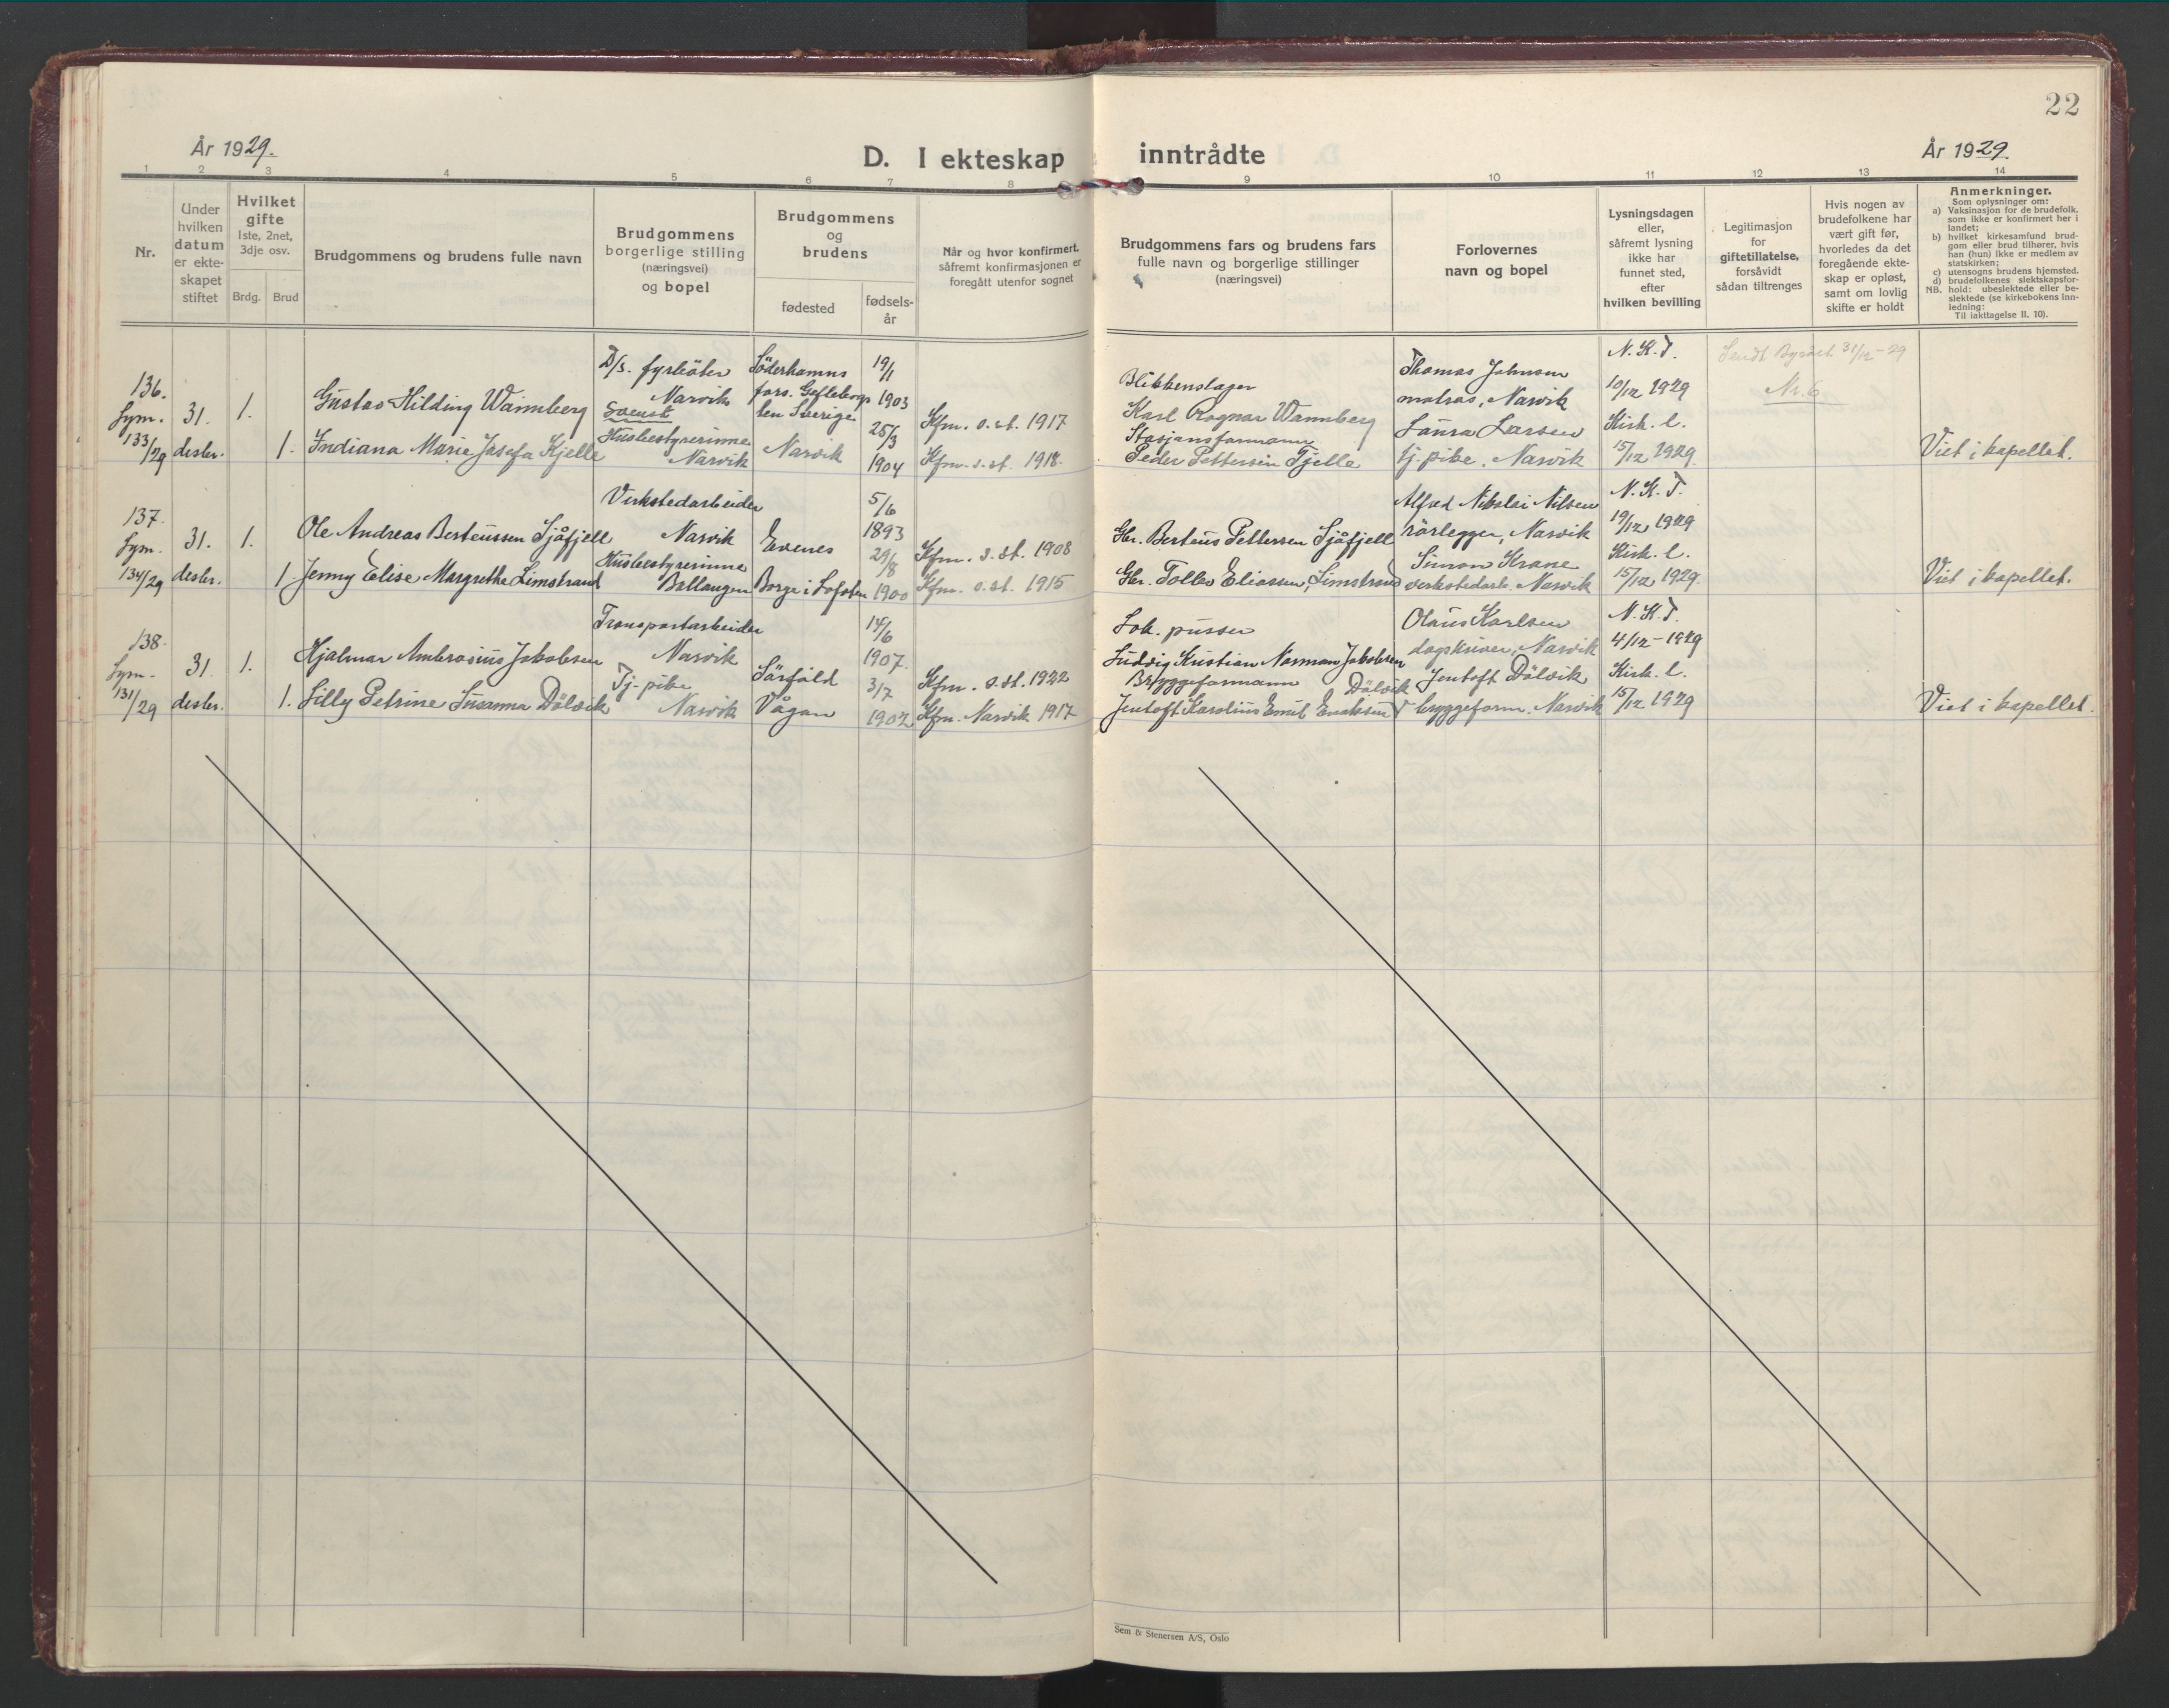 22
År 1929.
D. I ekteskap inntrådte
År 1929.
1 2 3 4 5 6 7 8 9 10 11 12 13 14
Nr.
Under
hvilken
datum
er ekte-
skapet
stiftet
Hvilket
gifte
1ste, 2net,
3dje osv.
Brdg. Brud
Brudgommens og brudens fulle navn
Brudgommens
borgerlige stilling
(næringsvei)
og bopel
Brudgommens
og
brudens
fødested
fødsels-
år
Når og hvor konfirmert,
såfremt konfirmasjonen er
foregått utenfor sognet
Brudgommens fars og brudens fars
fulle navn og borgerlige stillinger
(næringsvei)
Forlovernes
navn og bopel
Lysningsdagen
eller,
såfremt lysning
ikke har
funnet sted,
efter
hvilken bevilling
Legitimasjon
for
giftetillatelse,
forsåvidt
sådan tiltrenges
Hvis nogen av
brudefolkene har
vært gift før,
hvorledes da det
foregående ekte-
skap er opløst,
samt om lovlig
skifte er holdt
Anmerkninger.
Som oplysninger om:
a) Vaksinasjon for de brudefolk.
som ikke er konfirmert her i
landet;
b) hvilket kirkesamfund brud-
gom eller brud tilhører, hvis
han (hun) ikke er medlem av
statskirken;
c) utensogns brudens hjemsted.
d) brudefolkenes slektskapsfor-
NB. hold: ubeslektede eller be-
slektede (se kirkebokens inn-
ledning:
Til iakttagelse II. 10).
136.
Lysn.
133/29
31.
desbr.
1.
1.
Gustav Hilding Wannberg
Indiana Marie Josefa Kjelle
D/s. fyrbøter
Narvik
Svensk
Husbestyrerinne
Narvik
Söderhamns
fors. Gefleborgs
len Sverige
Narvik
19/1
1903
25/3
1904
Kfm. s. st. 1917
Kfm. s. st. 1918.
Blikkenslager
Karl Ragnar Wannberg
Stasjonsformann
Peder Pettersen Kjelle
Thomas Johnsen
matros, Narvik
Laura Larsen
tj. pike. Narvik
N. K. T.
10/12 1929
Kirk. l.
15/12 1929.
Sendt Byrået 31/12-29
Nr. 6
Viet i kapellet.
137.
Lysn.
134/29
31.
desbr.
1.
1.
Ole Andreas Berteussen Sjåfjell
Jenny Elise Margrethe Limstrand
Verkstedarbeider
Narvik
Husbestyrerinne
Ballangen
Evenes
Borge i Lofoten
5/6
1893
29/8
1900
Kfm. s. st. 1908
Kfm. s. st. 1915
Gbr. Berteus Pettersen Sjåfjell
Gbr. Tollev Eliassen, Limstrand
Alfred Nikolai Nilsen
rørlegger, Narvik
Simon Krane
verkstedarb. Narvik
N. K. T.
19/12 1929
Kirk. l.
15/12 1929.
Viet i kapellet.
138.
Lysn.
131/29
31.
desbr.
1.
1.
Hjalmar Ambrosius Jakobsen
Lilly Petrine Susanna Dölvik
Transportarbeider
Narvik
Tj. pike
Narvik
Sørfold
Vågan
14/6
1907.
3/7
1902
Kfm. s. st. 1922
Kfm. Narvik 1917
Lok. pusser
Ludvig Kristian Norman Jakobsen
Bryggeformann
Dölvik
Jentoft Karolius Emil Eriksen
Olaus Karlsen
dagskriver, Narvik
Jentoft Dölvik
bryggeform. Narvik
N. K. T.
4/12-1929
Kirk. l.
15/12 1929
Viet i kapellet.
Sem & Stenersen A/S, Oslo